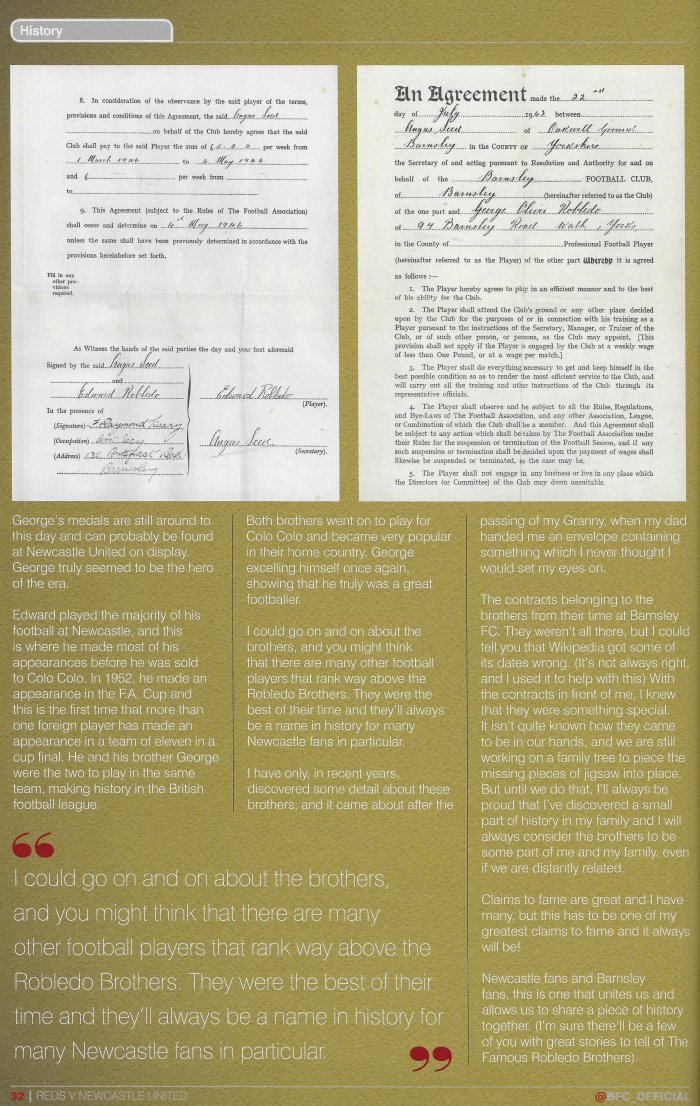 History
8. In consideration of the observance by the said player of the terms,
provisions and conditions of this Agreement, the said Angus Seed
on behalf of the Club hereby agrees that the said
Club shall pay to the said Player the sum of £5 0 0 per week from
1 March 1946 to 4 May 1946
and £ per week from
to
9. This Agreement (subject to the Rules of The Football Association)
shall cease and determine on 4th May 1946
unless the same shall have been previously determined in accordance with the
provisions hereinbefore set forth.
Fill in any
other pro-
visions
required.
As Witness the hands of the said parties the day and year first aforesaid
Signed by the said Angus Seed
and
Edward Robledo
In the presence of
(Signature)
(Occupation)
(Address) Barnsley
Edward Robledo
(Player).
Angus Seed
(Secretary).
An Agreement made the 22nd
day of July 1943 between
Angus Seed of Oakwell Ground
Barnsley in the COUNTY OF Yorkshire
the Secretary of and acting pursuant to Resolution and Authority for and on
behalf of the Barnsley FOOTBALL CLUB,
of Barnsley (hereinafter referred to as the Club)
of the one part and George Oliver Robledo
of 97 Barnsley Road Wath, Yorks
in the County of Professional Football Player
(hereinafter referred to as the Player) of the other part Whereby it is agreed
as follows :—
1. The Player hereby agrees to play in an efficient manner and to the best
of his ability for the Club.
2. The Player shall attend the Club's ground or any other place decided
upon by the Club for the purposes of or in connection with his training as a
Player pursuant to the instructions of the Secretary, Manager, or Trainer of the
Club, or of such other person, or persons, as the Club may appoint. [This
provision shall not apply if the Player is engaged by the Club at a weekly wage
of less than One Pound, or at a wage per match.]
3. The Player shall do everything necessary to get and keep himself in the
best possible condition so as to render the most efficient service to the Club, and
will carry out all the training and other instructions of the Club through its
representative officials.
4. The Player shall observe and be subject to all the Rules, Regulations,
and Bye-Laws of The Football Association, and any other Association, League,
or Combination of which the Club shall be a member. And this Agreement shall
be subject to any action which shall be taken by The Football Association under
their Rules for the suspension or termination of the Football Season, and if any
such suspension or termination shall be decided upon the payment of wages shall
likewise be suspended or terminated, as the case may be.
5. The Player shall not engage in any business or live in any place which
the Directors (or Committee) of the Club may deem unsuitable.
George's medals are still around to
this day and can probably be found
at Newcastle United on display.
George truly seemed to be the hero
of the era.
Edward played the majority of his
football at Newcastle, and this
is where he made most of his
appearances before he was sold
to Colo Colo. In 1952, he made an
appearance in the F.A. Cup and
this is the first time that more than
one foreign player has made an
appearance in a team of eleven in a
cup final. He and his brother George
were the two to play in the same
team, making history in the British
football league.
Both brothers went on to play for
Colo Colo and became very popular
in their home country. George
excelling himself once again,
showing that he truly was a great
footballer.
I could go on and on about the
brothers, and you might think
that there are many other football
players that rank way above the
Robledo Brothers. They were the
best of their time and they'll always
be a name in history for many
Newcastle fans in particular.
I have only, in recent years,
discovered some detail about these
brothers, and it came about after the
passing of my Granny, when my dad
handed me an envelope containing
something which I never thought I
would set my eyes on.
The contracts belonging to the
brothers from their time at Barnsley
FC. They weren't all there, but I could
tell you that Wikipedia got some of
its dates wrong. (It's not always right,
and I used it to help with this) With
the contracts in front of me, I knew
that they were something special.
It isn't quite known how they came
to be in our hands, and we are still
working on a family tree to piece the
missing pieces of jigsaw into place.
But until we do that, I'll always be
proud that I've discovered a small
part of history in my family and I will
always consider the brothers to be
some part of me and my family, even
if we are distantly related.
Claims to fame are great and I have
many, but this has to be one of my
greatest claims to fame and it always
will be!
Newcastle fans and Barnsley
fans, this is one that unites us and
allows us to share a piece of history
together. (I'm sure there'll be a few
of you with great stories to tell of The
Famous Robledo Brothers).
“
I could go on and on about the brothers,
and you might think that there are many
other football players that rank way above the
Robledo Brothers. They were the best of their
time and they'll always be a name in history for
many Newcastle fans in particular.
”
32 | REDS V NEWCASTLE UNITED
@BFC_OFFICIAL